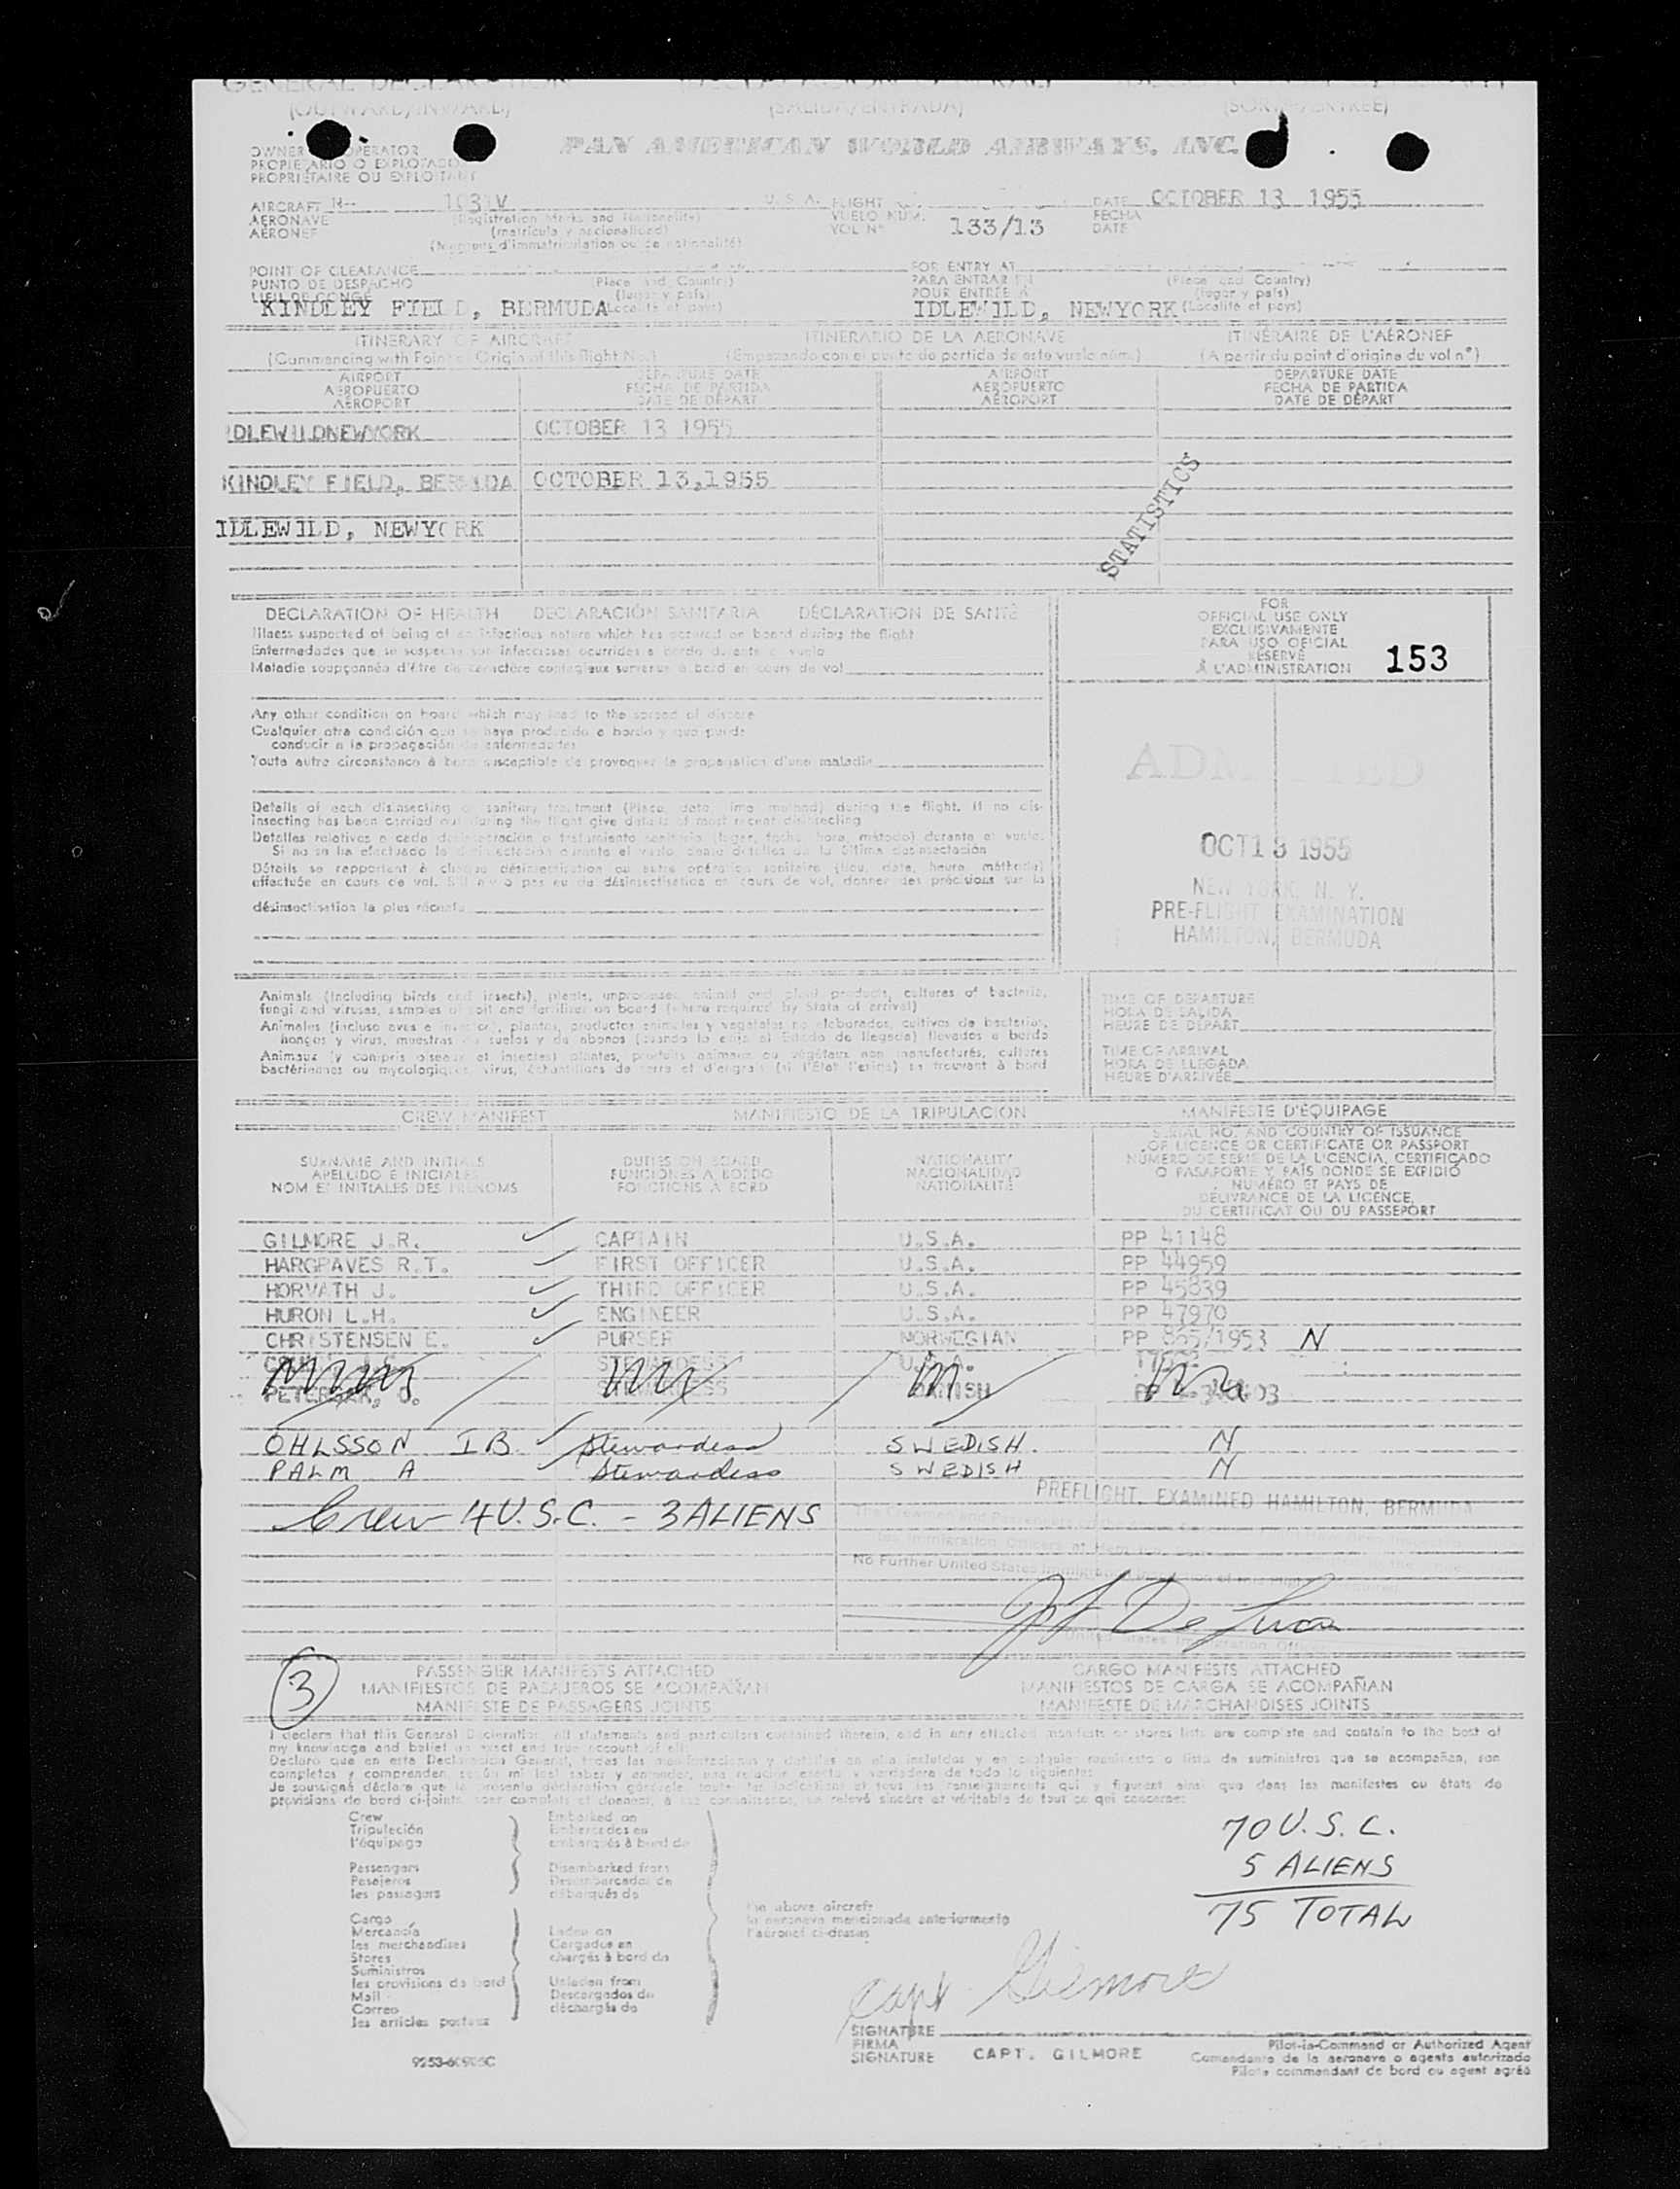 GENERAL DECLARATION
(OUTWARD/INWARD) (SALIDA/ENTRADA) (SORTIE/ENTREE)
OWNER OPERATOR
PROPIETARIO O EXPLOTADOR
PROPRIÉTAIRE OU EXPLOITANT
PAN AMERICAN WORLD AIRWAYS, INC.
AIRCRAFT N-- 1031V U. S. A. FLIGHT DATE OCTOBER 13 1955
AERONAVE (Registration Marks and Nationality) VUELO NUM. 133/13 FECHA
AÉRONEF (matricula y nacionalidad) VOL Nº DATE
(Marques d'immatriculation ou de nationalité)
POINT OF CLEARANCE FOR ENTRY AT
PUNTO DE DESPACHO (Place and Country) PARA ENTRAR EN (Place and Country)
LIEU DE CONGÉ (lugar y país) POUR ENTRÉE À (lugar y país)
KINDLEY FIELD, BERMUDA (Localité et pays) IDLEWILD, NEWYORK (Localité et pays)
ITINERARY OF AIRCRAFT ITINERARIO DE LA AERONAVE ITINÉRAIRE DE L'AÉRONEF
(Commencing with Point of Origin of this flight No.) (Empezando con el punto de partida de este vuelo núm.) (A partir du point d'origine du vol nº)
AIRPORT DEPARTURE DATE AIRPORT DEPARTURE DATE
AEROPUERTO FECHA DE PARTIDA AEROPUERTO FECHA DE PARTIDA
AÉROPORT DATE DE DÉPART AÉROPORT DATE DE DÉPART
IDLEWILDNEWYORK OCTOBER 13 1955
KINDLEY FIELD, BERMUDA OCTOBER 13,1955
IDLEWILD, NEWYORK
STATISTICS
DECLARATION OF HEALTH DECLARACIÓN SANITARIA DÉCLARATION DE SANTÉ
Illness suspected of being of an infectious nature which has occured on board during the flight
Enfermedades que se sospecha son infecciosas ocurridas a bordo durante el vuelo
Maladie soupçonnée d'être de caractère contagieux survenue à bord en cours de vol
FOR
OFFICIAL USE ONLY
EXCLUSIVAMENTE
PARA USO OFICIAL
RÉSERVÉ
À L'ADMINISTRATION 153
Any other condition on board which may lead to the spread of disease
Cualquier otra condición que se haya producido a bordo y que puede
conducir a la propagación de enfermedades
Toute autre circonstance à bord susceptible de provoquer la propagation d'une maladie
ADMITTED
OCT 13 1955
NEW YORK, N. Y.
PRE-FLIGHT EXAMINATION
HAMILTON, BERMUDA
Details of each disinsecting or sanitary treatment (Place, date, time method) during the flight. If no dis-
insecting has been carried out during the flight give details of most recent disinsecting
Detalles relativos a cada desinsectación o tratamiento sanitario (lugar, fecha, hora, método) durante el vuelo.
Si no se ha efectuado la desinsectación durante el vuelo, denle detalles de la última desinsectación
Détails se rapportant à chaque désinsectisation ou autre opération sanitaire (lieu, date, heure, méthode)
effectuée en cours de vol. S'il n'y a pas eu de désinsectisation en cours de vol, donner des précisions sur la
désinsectisation la plus récente
Animals (including birds and insects), plants, unprocessed animal and plant products, cultures of bacteria,
fungi and viruses, samples of soil and fertilizer on board (where required by State of arrival)
Animales (incluso aves e insectos), plantas, productos animales y vegetales no elaborados, cultivos de bacterias,
hongos y virus, muestras de suelos y de abonos (cuando lo exija el Estado de llegada) llevados a bordo
Animaux (y compris oiseaux et insectes) plantes, produits animaux ou végétaux non manufacturés, cultures
bactériennes ou mycologiques, virus, échantillons de terre et d'engrais (si l'État l'exige) se trouvant à bord
TIME OF DEPARTURE
HORA DE SALIDA
HEURE DE DÉPART
TIME OF ARRIVAL
HORA DE LLEGADA
HEURE D'ARRIVÉE
CREW MANIFEST MANIFIESTO DE LA TRIPULACIÓN MANIFESTE D'ÉQUIPAGE
SURNAME AND INITIALS
APELLIDO E INICIALES
NOM ET INITIALES DES PRÉNOMS
DUTIES ON BOARD
FUNCIONES A BORDO
FONCTIONS À BORD
NATIONALITY
NACIONALIDAD
NATIONALITÉ
SERIAL NO. AND COUNTRY OF ISSUANCE
OF LICENCE OR CERTIFICATE OR PASSPORT
NÚMERO DE SERIE DE LA LICENCIA, CERTIFICADO
O PASAPORTE Y PAÍS DONDE SE EXPIDIÓ
NUMÉRO ET PAYS DE
DÉLIVRANCE DE LA LICENCE,
DU CERTIFICAT OU DU PASSEPORT
GILMORE J.R. CAPTAIN U.S.A. PP 41148
HARGRAVES R.T. FIRST OFFICER U.S.A. PP 44959
HORVATH J. THIRD OFFICER U.S.A. PP 45839
HURON L.H. ENGINEER U.S.A. PP 47970
CHRISTENSEN E. PURSER NORWEGIAN PP 865/1953 N
STEWARDESS U.S.A.
STEWARDESS DANISH PP
OHLSSON I B Stewardess SWEDISH. N
PALM A Stewardess SWEDISH N
PREFLIGHT. EXAMINED HAMILTON, BERMUDA
Crew 4 U.S.C. - 3 ALIENS
No Further United States
J F De Luca
United States Immigration Officer
3
PASSENGER MANIFESTS ATTACHED CARGO MANIFESTS ATTACHED
MANIFIESTOS DE PASAJEROS SE ACOMPAÑAN MANIFIESTOS DE CARGA SE ACOMPAÑAN
MANIFESTE DE PASSAGERS JOINTS MANIFESTE DE MARCHANDISES JOINTS
I declare that this General Declaration, all statements and particulars contained therein, and in any attached manifests or stores lists are complete and contain to the best of
my knowledge and belief an exact and true account of all
Declaro que en esta Declaración General, todas las manifestaciones y detalles en ella incluidos y en cualquier manifiesto o lista de suministros que se acompañan, son
completos y comprenden, según mi leal saber y entender, una relación exacta y verdadera de todo lo siguiente:
Je soussigné déclare que la présente déclaration générale, toutes les indications et tous les renseignements qui y figurent ainsi que dans les manifestes ou états de
provisions de bord ci-joints, sont complets et donnent, à ma connaissance, un relevé sincère et véritable de tout ce qui concerne:
Crew Embarked on
Tripulación Embarcados en
l'équipage embarqués à bord de
Passengers Disembarked from
Pasajeros Desembarcados de
les passagers débarqués de
Cargo
Mercancía Laden on
les merchandises Cargados en
Stores chargés à bord de
Suministros
les provisions de bord Unladen from
Mail Descargados de
Correo déchargés de
les articles postaux
the above aircraft
la aeronave mencionada anteriormente
l'aéronef ci-dessus
70 U. S. C.
5 ALIENS
75 TOTAL
Capt Gilmore
SIGNATURE
FIRMA
SIGNATURE CAPT. GILMORE
Pilot-in-Command or Authorized Agent
Comandante de la aeronave o agente autorizado
Pilote commandant de bord ou agent agréé